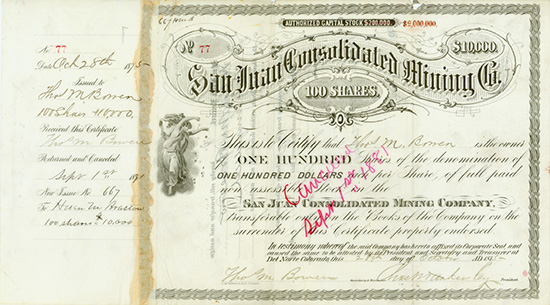 No 77
Date Oct 28th 187
Issued to
Thos M Bowen
100 Shares $10,000
Received this Certificate
Thos M Bowen
Returned and Canceled
Sept 1st 1881
New Issue No 667
To
100 shares $10,000
AUTHORIZED CAPITAL STOCK $200,000.
No 77
$10,000.
San Juan Consolidated Mining Co.
100 SHARES.
This is to Certify that Thos M. Bowen
is the owner of
ONE HUNDRED Shares of the denomination of
ONE HUNDRED DOLLARS per Share, of full paid
non assessable Stock in the
SAN JUAN CONSOLIDATED MINING COMPANY.
Transferable on the Books of the Company on the
surrender of this Certificate properly endorsed.
Canceled
Sept 1st 1881
In testimony whereof the said Company has hereto affixed its Corporate Seal and
caused the same to be attested by its President and Secretary and Treasurer at
Del Norte Colorado this day of
Thos M Bowen